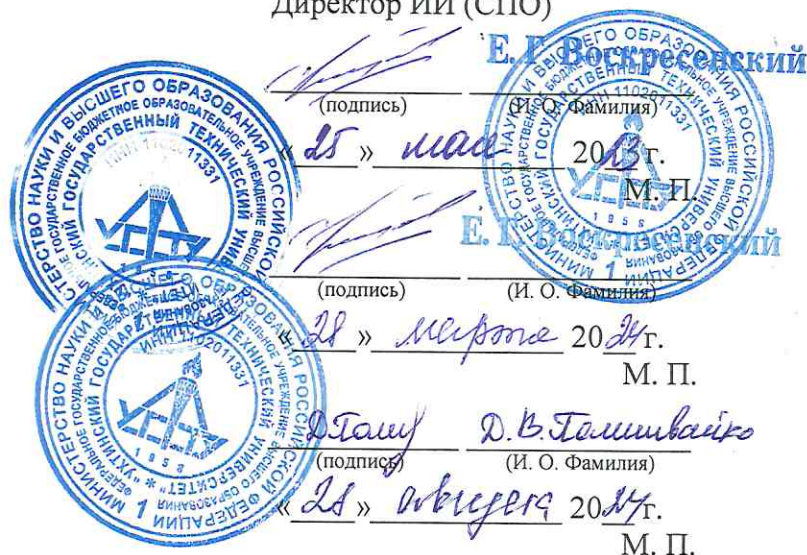 Директор ИИ (СПО)
Е. Г. Воскресенский
(подпись) (И. О. Фамилия)
« 25 » мая 2023 г.
М. П.
Е. Г. Воскресенский
(подпись) (И. О. Фамилия)
« 28 » марта 2024 г.
М. П.
Д. В. Полишвайко
(подпись) (И. О. Фамилия)
« 28 » августа 2024 г.
М. П.
МИНИСТЕРСТВО НАУКИ И ВЫСШЕГО ОБРАЗОВАНИЯ РОССИЙСКОЙ ФЕДЕРАЦИИ
ФЕДЕРАЛЬНОЕ ГОСУДАРСТВЕННОЕ БЮДЖЕТНОЕ ОБРАЗОВАТЕЛЬНОЕ УЧРЕЖДЕНИЕ ВЫСШЕГО ОБРАЗОВАНИЯ
УХТИНСКИЙ ГОСУДАРСТВЕННЫЙ ТЕХНИЧЕСКИЙ УНИВЕРСИТЕТ
ИНН 1102011331
УГТУ
1958
1